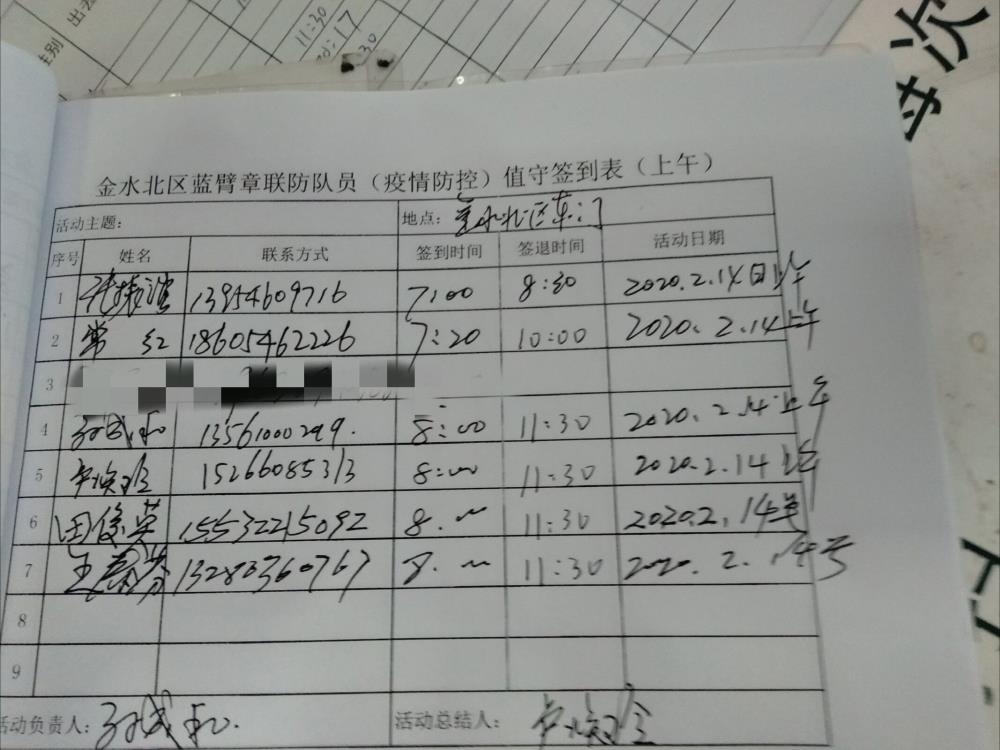 性别 出去
11:30
金水北区蓝臂章联防队员（疫情防控）值守签到表（上午）
活动主题： 地点：金水北区东门
序号 姓名 联系方式 签到时间 签退时间 活动日期
1 13954609716 7:00 8:30 2020.2.14日上午
2 常红 18605462226 7:20 10:00 2020.2.14上午
3
4 孙成和 13561000299. 8:00 11:30 2020.2.14上午
5 15266085313 8:00 11:30 2020.2.14上午
6 田俊英 15532215092 8. 11:30 2020.2.14
7 王 芬 13280360767 8. 11:30 2020.2.14号
8
9
活动负责人：孙成和. 活动总结人：